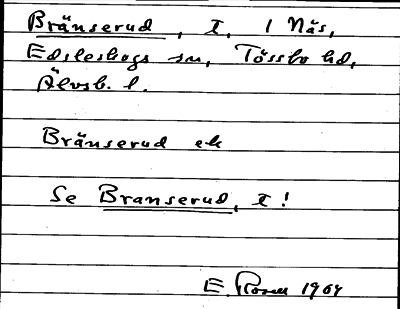 Bränserud, I. 1 Näs,
Edsleskogs sn, Tössbo hd,
Älvsb. l.
Bränserud ek
Se Branserud, I!
E. Rosell 1964